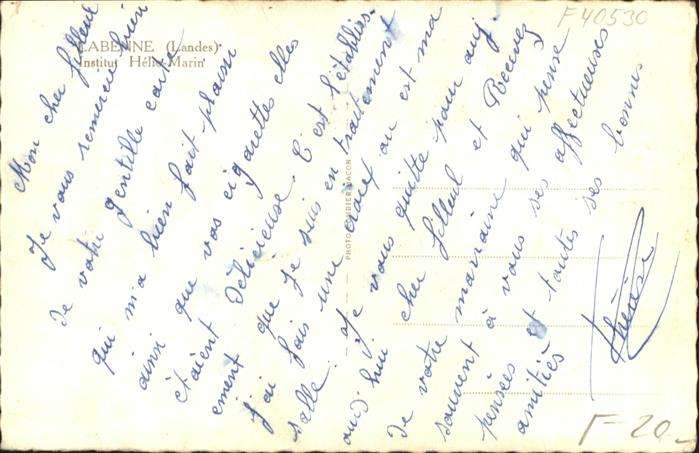 F40530
LABENNE (Landes)
Institut Hélio-Marin
Mon cher filleul
Je vous remercie bien
de votre gentille carte
qui m'a bien fait plaisir
ainsi que vos cigarettes elles
étaient délicieuse. C'est l'établis-
ement que je suis en traitement
j'ai fais une croix ou est ma
salle. Je vous quitte pour auj.
ourd'hui cher filleul et Recevez
de votre marraine qui pense
souvent à vous ses affectueuses
pensées et toutes ses bonnes
amitiés
Thérèse
F-20-